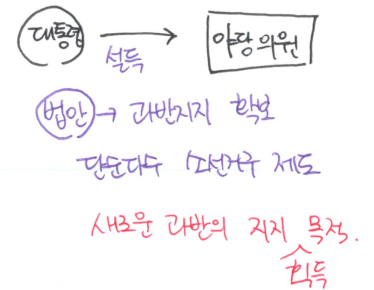 대통령 → 야당의원
설득
법안 → 과반지지 확보
단순다수 소선거구 제도
새로운 과반의 지지 획득 목적.